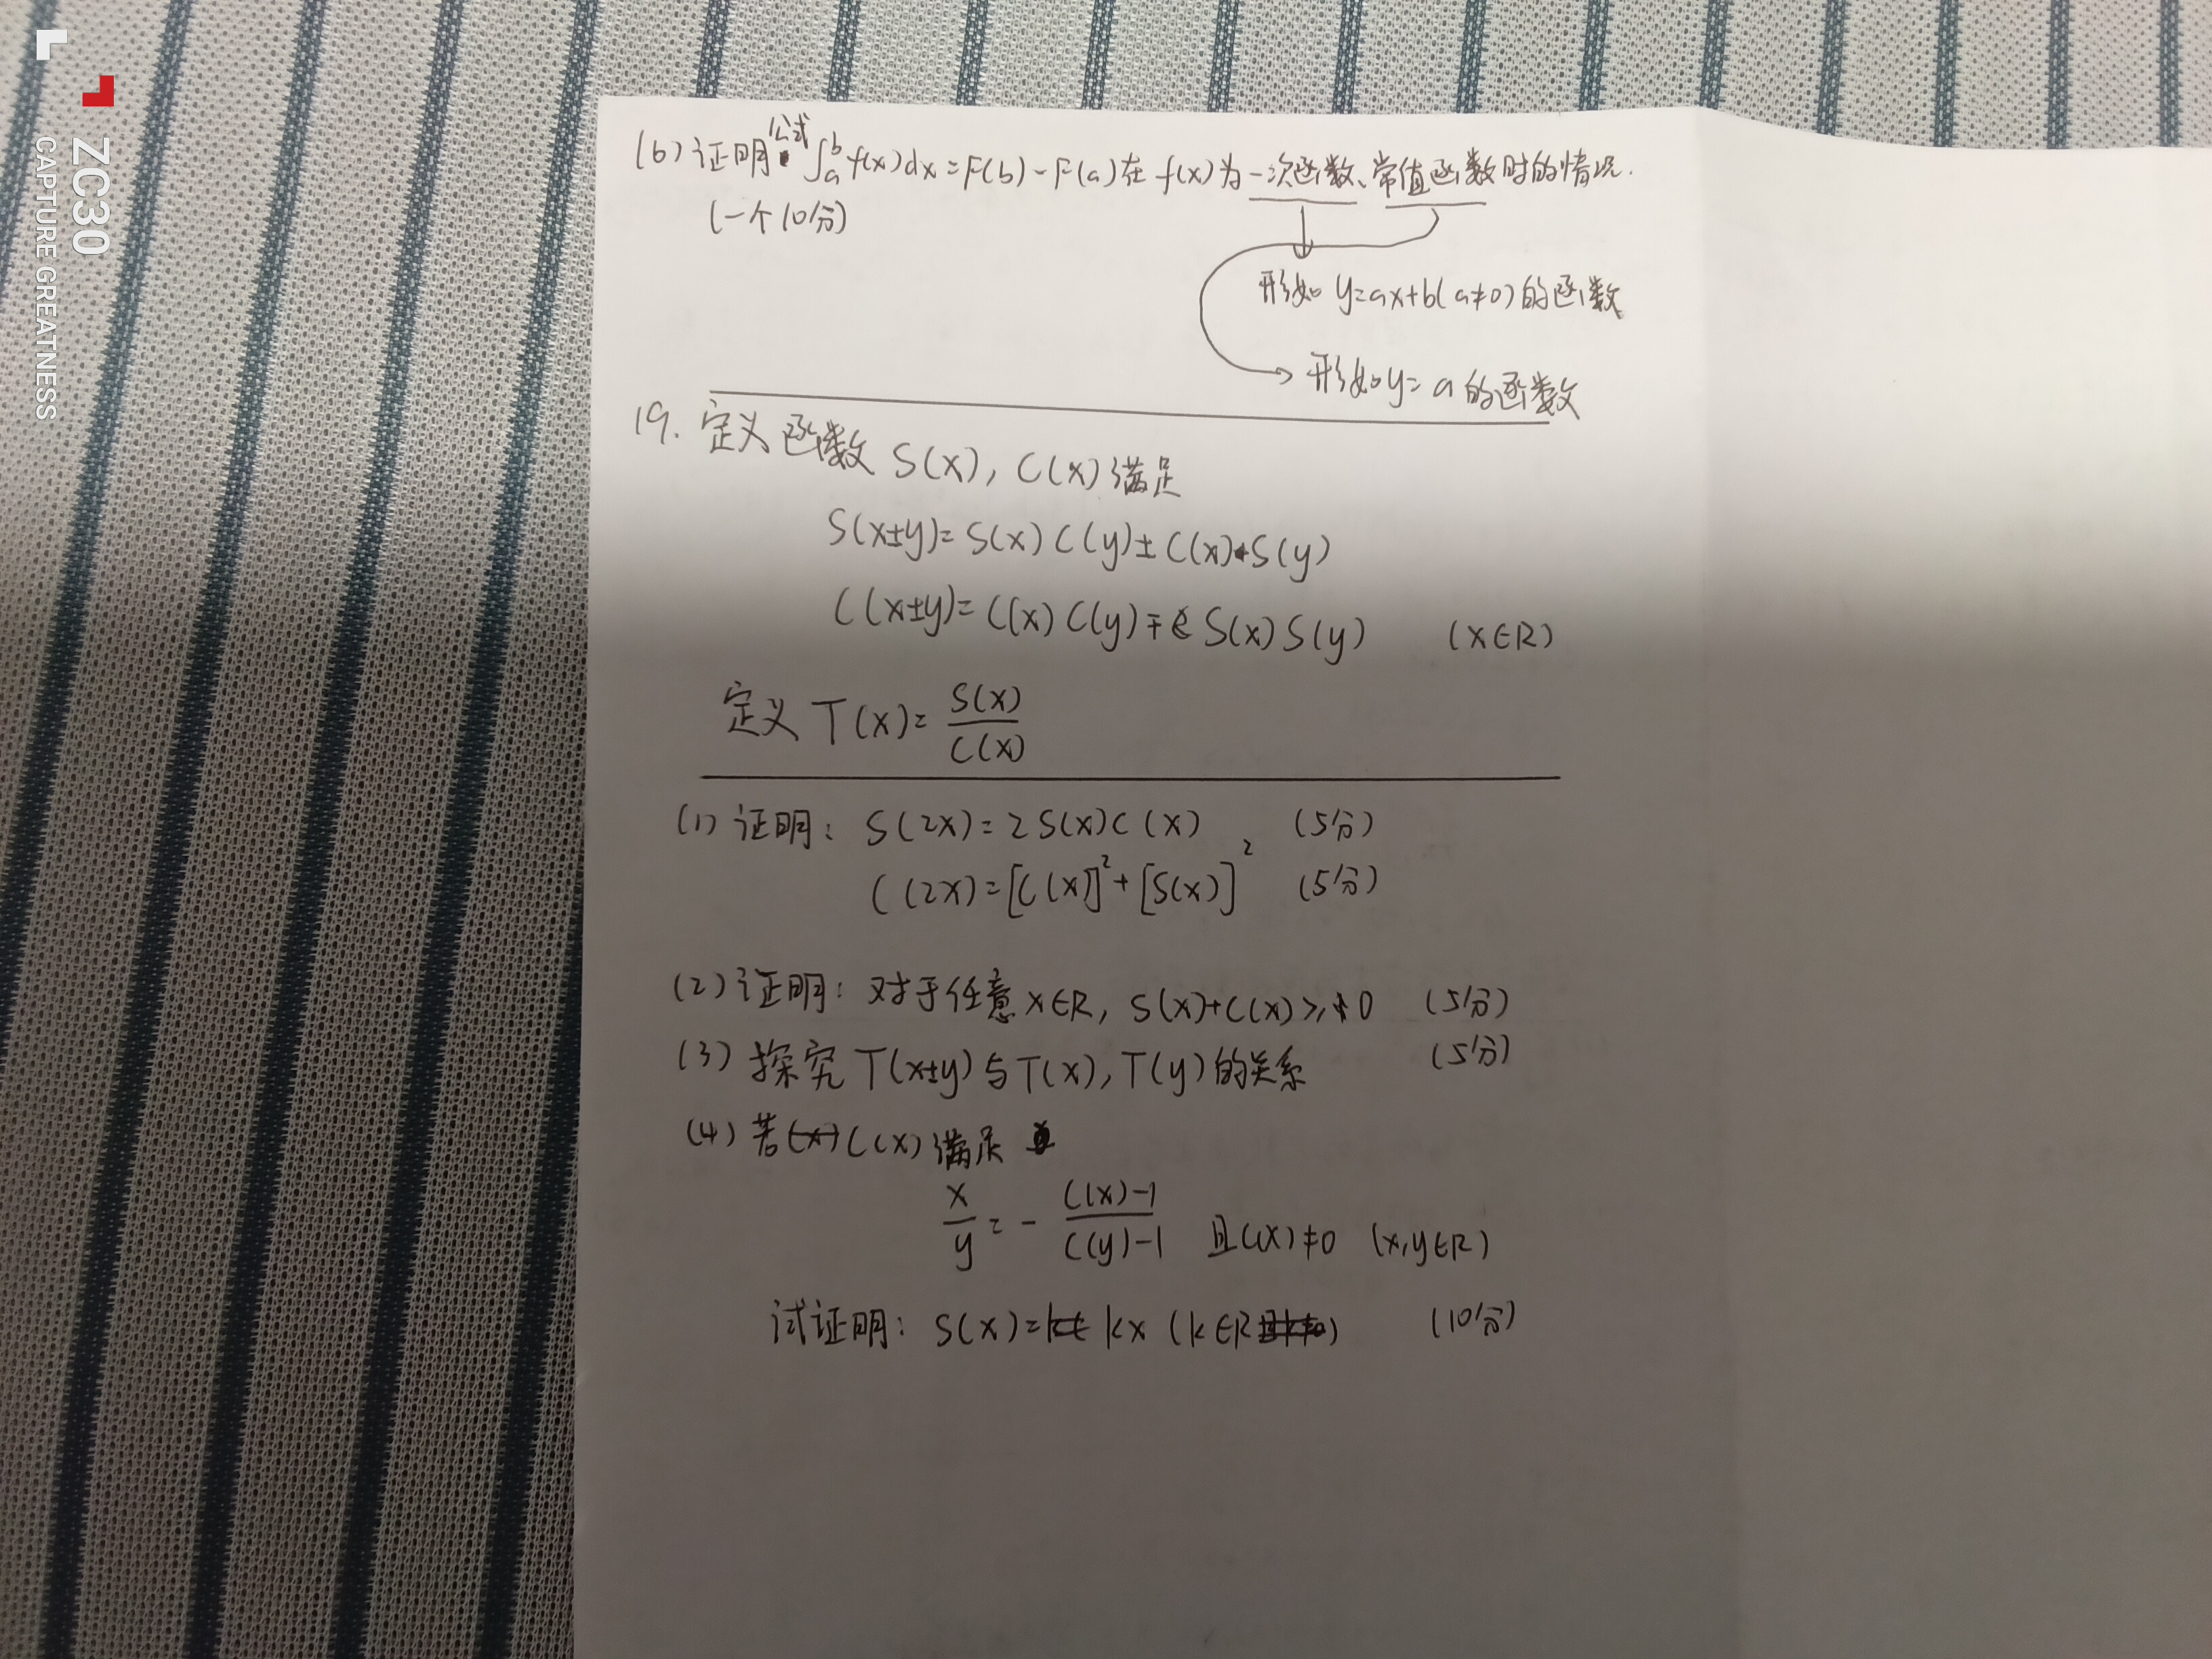 (6) 证明公式 ∫ₐᵇ f(x)dx = F(b) - F(a) 在 f(x) 为一次函数、常值函数时的情况.
(一个10分)
形如 y=ax+b(a≠0) 的函数
形如 y=a 的函数
19. 定义函数 S(x), C(x) 满足
S(x±y)= S(x) C(y) ± C(x)·S(y)
C(x±y)= C(x) C(y) ∓ S(x) S(y) (x∈R)
定义 T(x)= S(x)/C(x)
(1) 证明: S(2x)= 2S(x)C(x) (5分)
C(2x)=[C(x)]²+[S(x)]² (5分)
(2) 证明: 对于任意x∈R, S(x)+C(x)≥0 (5分)
(3) 探究 T(x±y)与T(x), T(y)的关系 (5分)
(4) 若C(x)满足
x/y = - (C(x)-1)/(C(y)-1) 且C(x)≠0 (x,y∈R)
试证明: S(x)= kx (k∈R) (10分)
ZC30
CAPTURE GREATNESS